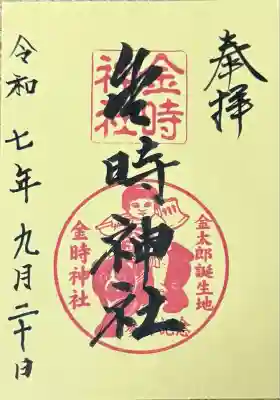 奉拝
金時
神社
金時神社
金太郎誕生地
金時神社
記念
令和七年九月二十日